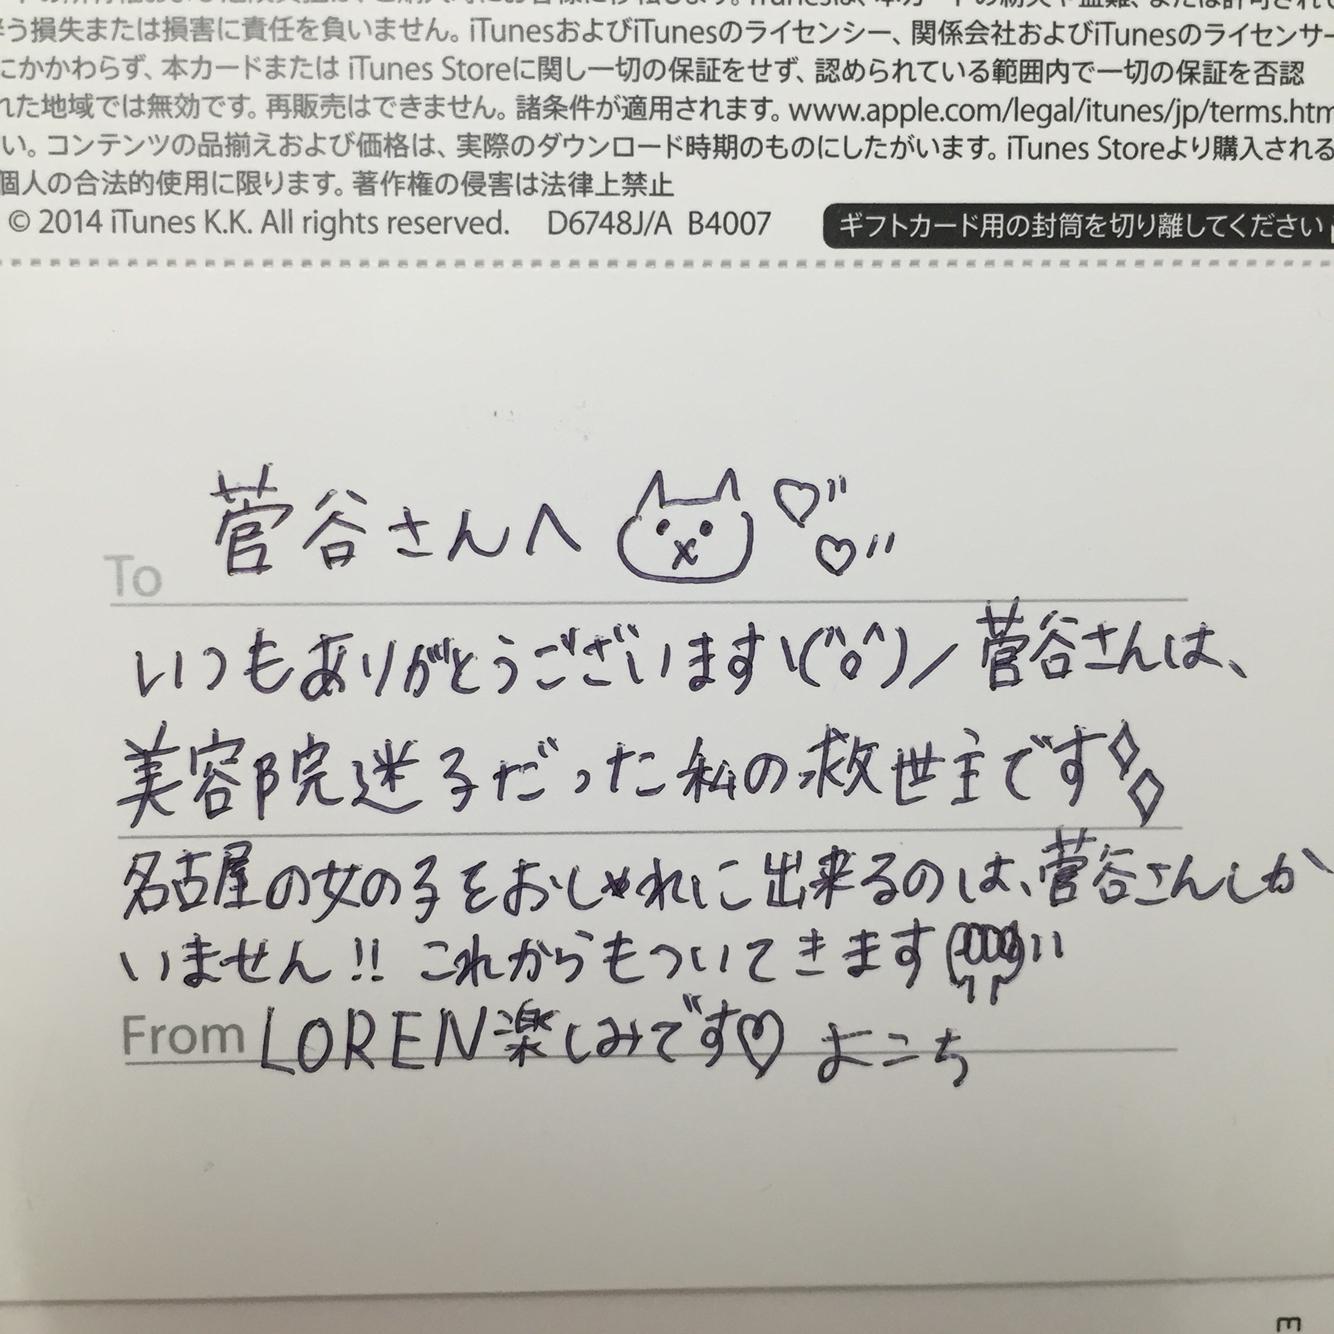 う損失または損害に責任を負いません。iTunesおよびiTunesのライセンシー、関係会社およびiTunesのライセンサー
にかかわらず、本カードまたは iTunes Storeに関し一切の保証をせず、認められている範囲内で一切の保証を否認
れた地域では無効です。再販売はできません。諸条件が適用されます。www.apple.com/legal/itunes/jp/terms.htm
い。コンテンツの品揃えおよび価格は、実際のダウンロード時期のものにしたがいます。iTunes Storeより購入される
個人の合法的使用に限ります。著作権の侵害は法律上禁止
© 2014 iTunes K.K. All rights reserved. D6748J/A B4007 ギフトカード用の封筒を切り離してください
To 菅谷さんへ ♡" ♡"
いつもありがとうございます\(^o^)/ 菅谷さんは、
美容院迷子だった私の救世主です
名古屋の女の子をおしゃれに出来るのは、菅谷さんしか
いません!! これからもついてきます
From LOREN楽しみです♡ よこち
E